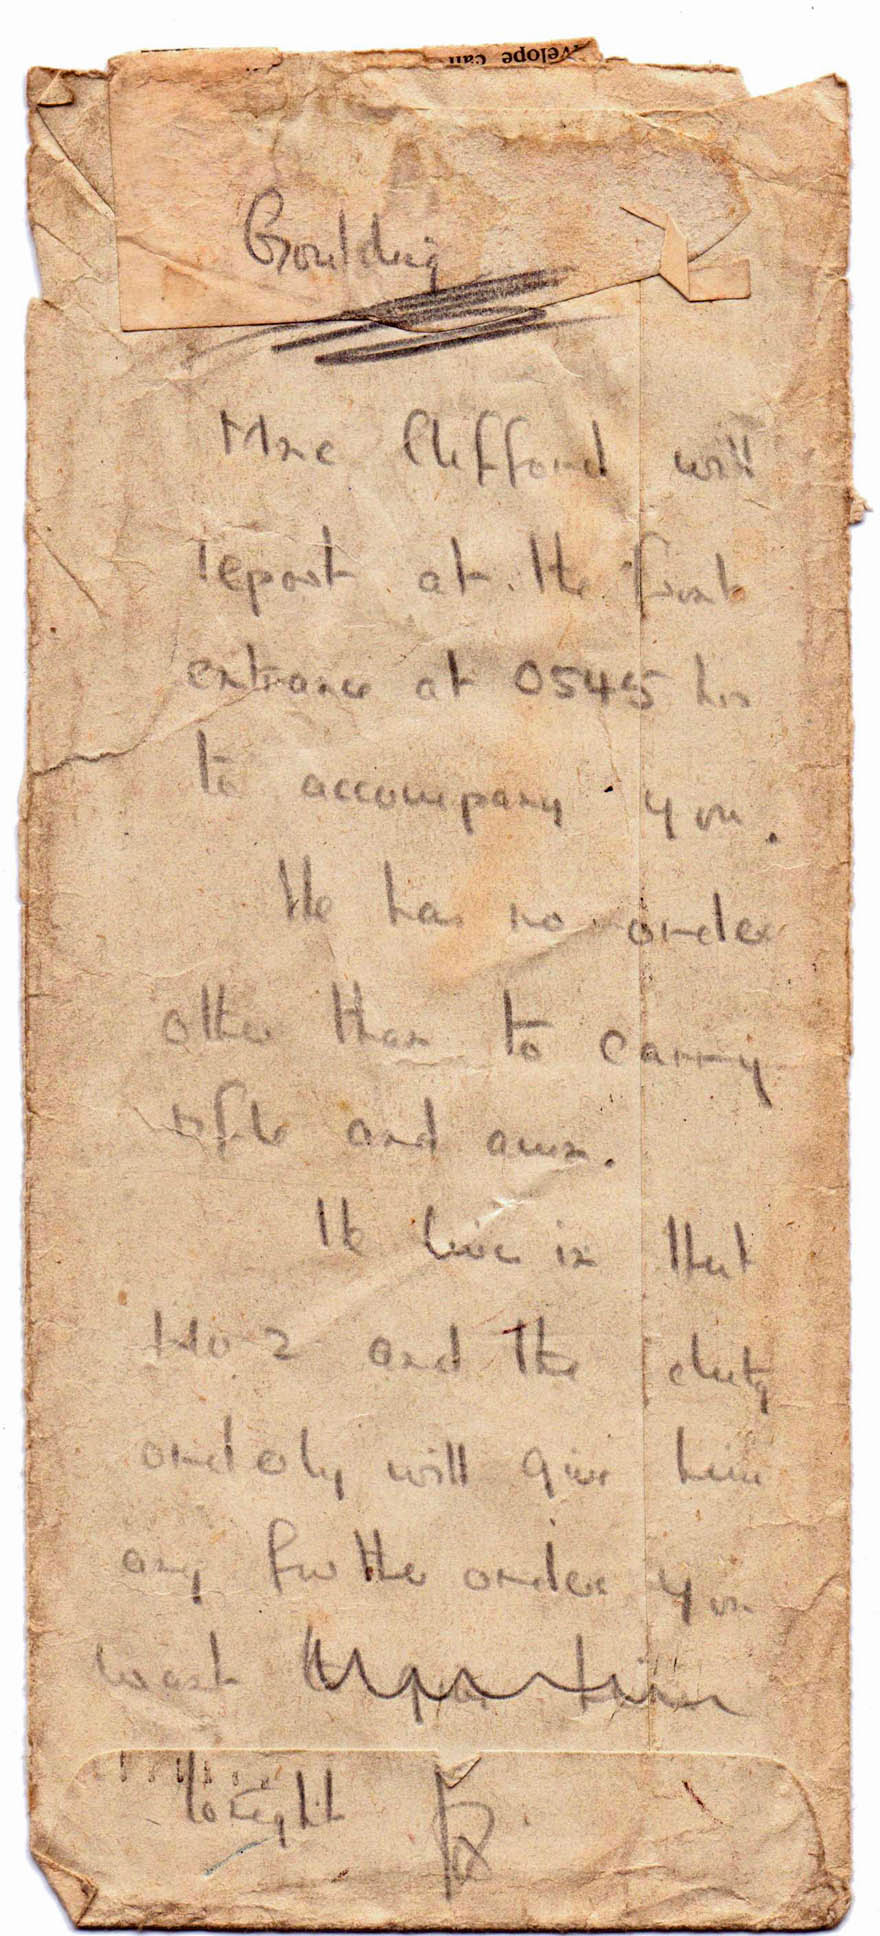 velope can
Goulding
Mne Clifford will
report at the front
entrance at 0545 hrs
to accompany you.
He has no orders
other than to carry
rifle and amn.
He lives in Hut
No 2 and the duty
orderly will give him
any further orders you
want
tonight